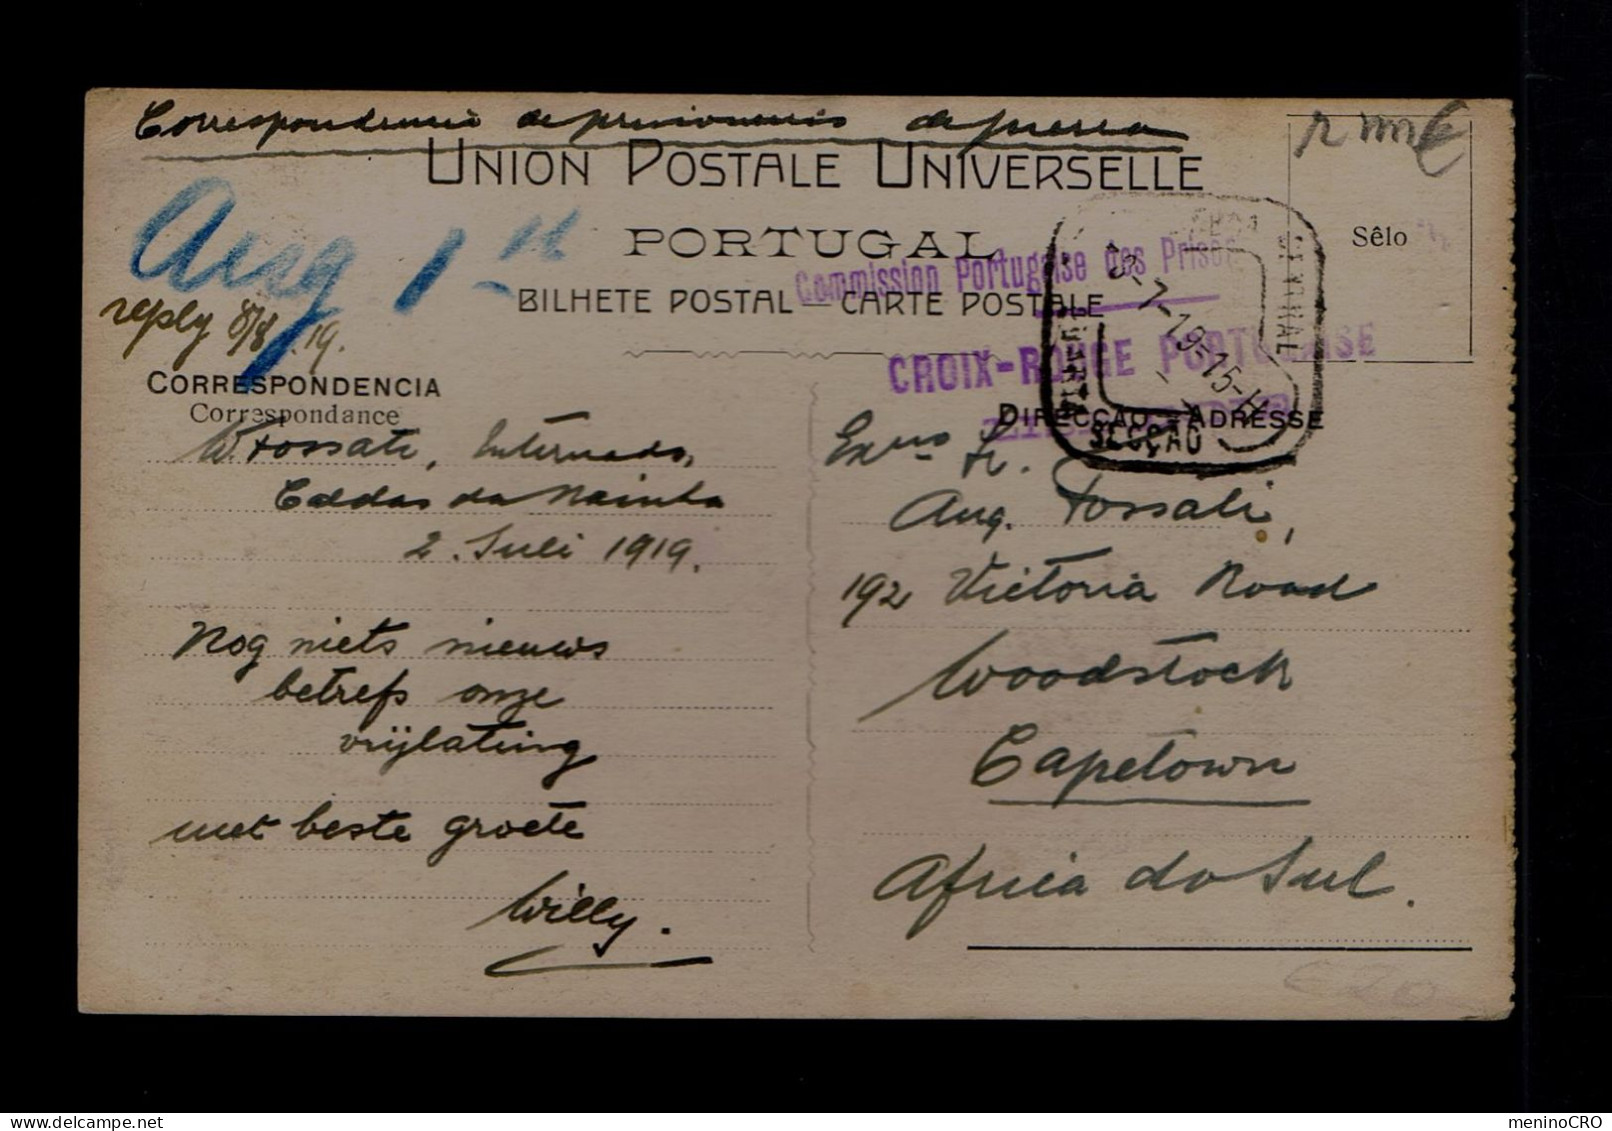 Correspondencia de prisioneiros de guerra
UNION POSTALE UNIVERSELLE
PORTUGAL
BILHETE POSTAL — CARTE POSTALE
Aug 1st
reply 8/8.19.
Commission Portugaise des Prison
CROIX-ROUGE PORTUGAISE
CENTRAL
3-7-19-15-H
QUARTA
SECÇÃO
Sêlo
CORRESPONDENCIA
Correspondance
W. Fossati, Internado,
Caldas da Rainha
2. Juli 1919.
Nog niets nieuws
betrefs onze
vrijlating
met beste groete
Willy.
DIRECÇÃO - ADRESSE
Exmo Sr.
Aug. Fossati,
192 Victoria Road
Woodstock
Capetown
Africa do Sul.
€20
meninoCRO